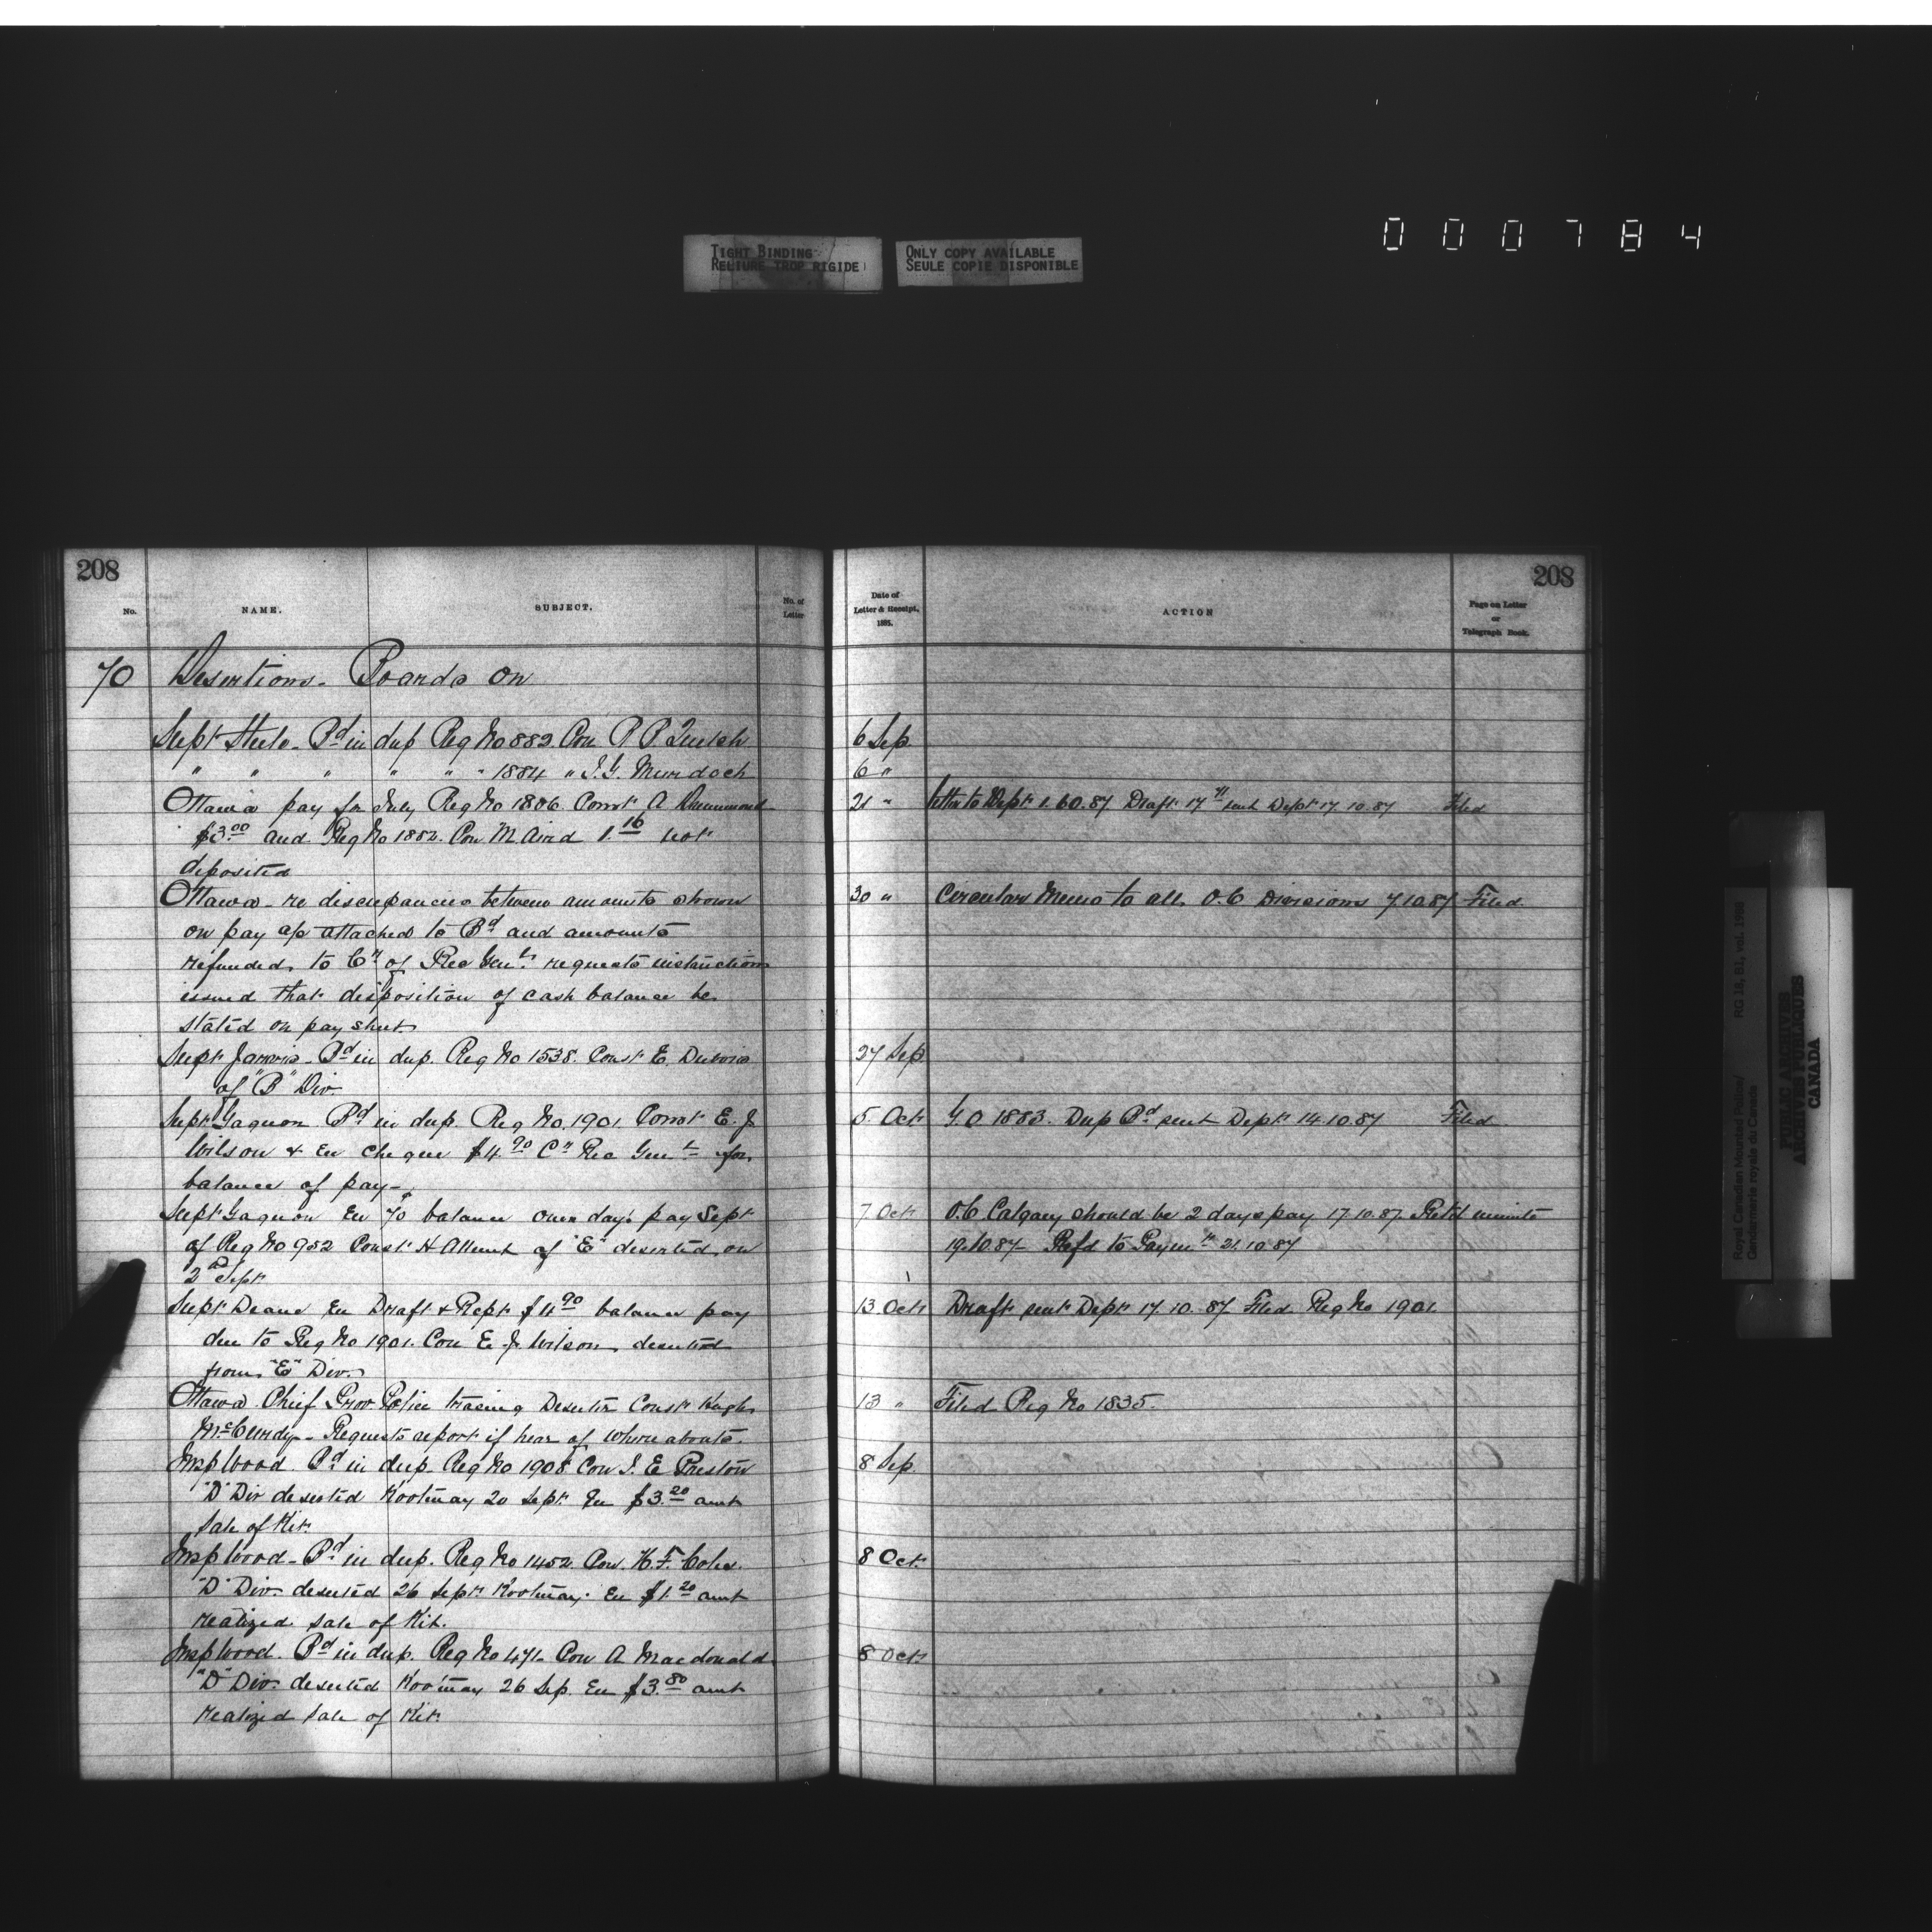 000784
TIGHT BINDING
RELIURE TROP RIGIDE
ONLY COPY AVAILABLE
SEULE COPIE DISPONIBLE
208
No.
NAME.
SUBJECT.
No. of
Letter
70 Desertions - Boards on
Supt Steele - Bd in dup Reg No 882 Con R P
" " " " " " 1884 " J.G. Murdoch
Ottawa pay for July Reg No 1806. Const A Drummond
$3.00 and Reg No 1852. Con M. Aird 1.16 not
deposited
Ottawa - re discrepancies between amounts shown
on pay a/c attached to Bd and amounts
refunded to Cr of Rec Genl. requests instructions
issued that disposition of cash balance be
stated on pay sheet
Supt Jarvis - Bd in dup. Reg No 1538. Const E.
of "B" Div
Supt Gagnon Bd in dup. Reg No. 1901 Const E. J.
Wilson & En cheque $4.90 Cr Rec Genl for
balance of pay -
Supt Gagnon En 70 balance one day's pay Sept
of Reg No 952 Const H of "E" deserted on
2nd Sept
Supt Deane En Draft & Rept $4.90 balance pay
due to Reg No 1901. Con E. J. Wilson deserted
from "E" Div.
Ottawa Chief Prov. Police tracing Deserter Const Hugh
McCurdy - Requests report if hear of whereabouts.
Insp Wood Bd in dup. Reg No 1908 Con J. E Preston
"D" Div deserted Kootenay 20 Sept. En $3.20 amt
Sale of Kit.
Insp Wood - Bd in dup. Reg No 1452. Con. H. F. Coles.
"D" Div. deserted 26 Sept. Kootenay. En $1.20 amt
realized sale of Kit.
Insp Wood. Bd in dup. Reg No 471 - Con A. Macdonald
"D" Div. deserted Kootenay 26 Sep. En $3.80 amt
realized Sale of Kit.
208
Date of
Letter & Receipt,
1885.
ACTION
Page on Letter
or
Telegraph Book.
6 Sep.
6 "
21 " letter to Dept Draft 17 sent Dept 17.10.87 Filed
30 " Circular Memo to all O.C Divisions 7.10.87 Filed.
27 Sep
5. Oct G.O. 1883. Dup Bd sent Dept 14.10.87 Filed
7 Oct O.C Calgary should be 2 days pay 17.10.87. Retd minute
19.10.87 - Refd to Paymr 21.10.87
13. Oct Draft sent Dept 17.10.87 Filed Reg No 1901.
13 " Filed Reg No 1835.
8 Sep.
8 Oct.
8 Oct
Royal Canadian Mounted Police/
Gendarmerie royale du Canada
RG 18, B1, vol. 1998
PUBLIC ARCHIVES
ARCHIVES PUBLIQUES
CANADA